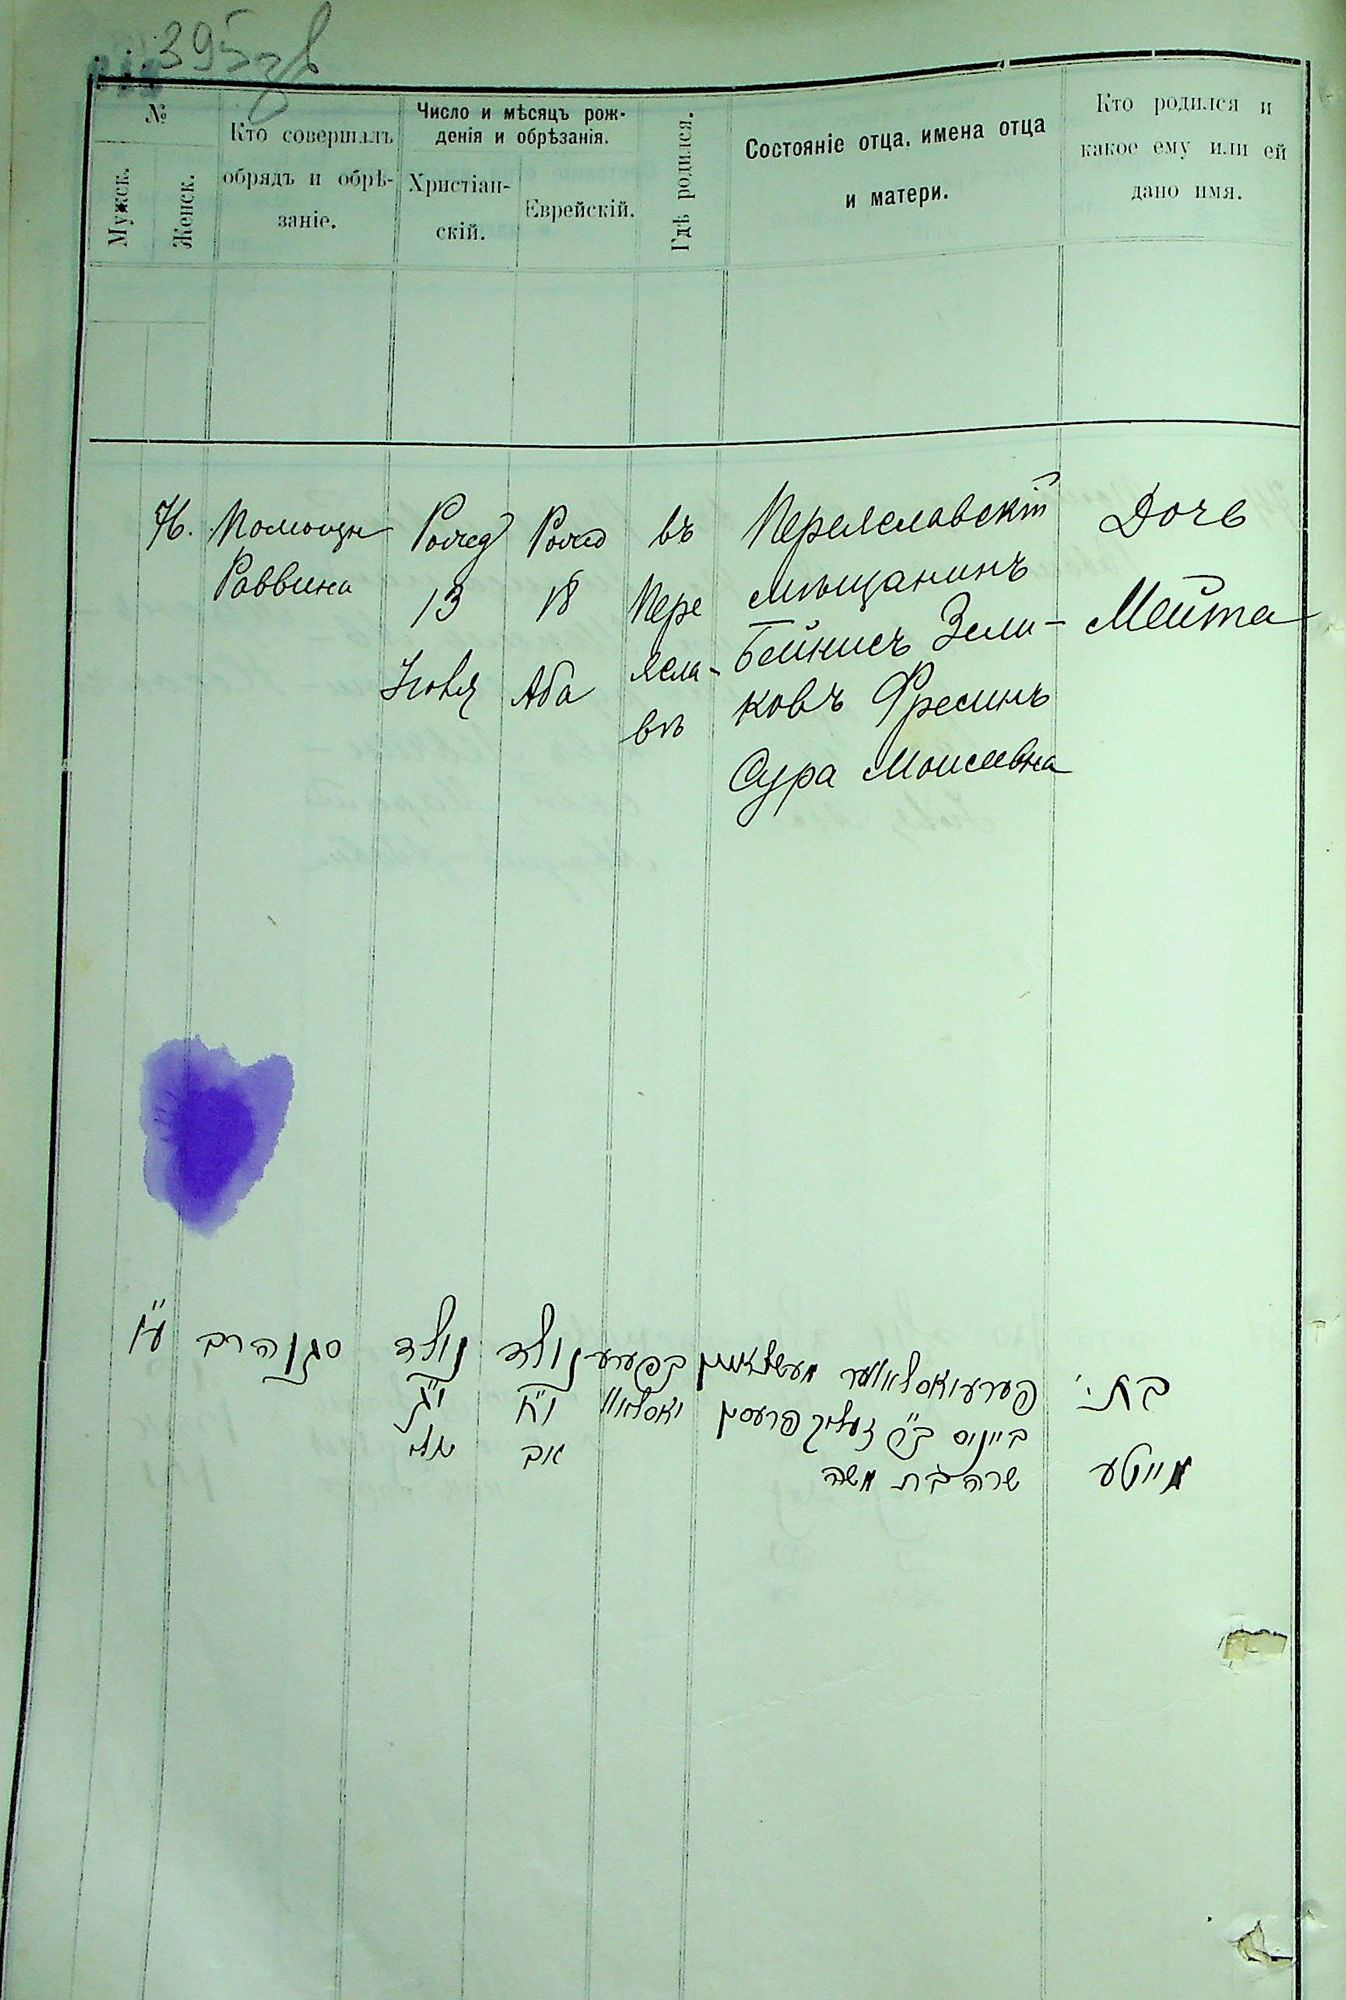 395 зв
№
Мужск.
Женск.
Кто совершалъ
обрядъ и обрѣ-
заніе.
Число и мѣсяцъ рож-
денія и обрѣзанія.
Христіан-
скій.
Еврейскій.
Гдѣ родился.
Состояніе отца, имена отца
и матери.
Кто родился и
какое ему или ей
дано имя.
76.
Помощн
Раввина
Рожд
13
Іюля
Рожд
18
Аба
въ
Пере
ясла-
вѣ
Переяславскій
мѣщанинъ
Бейнисъ Зели-
ковъ Фресинъ
Сура Моисеевна
Дочь
Мейта
ע"ו
סגן הרב
נולד
י"ג
יולי
נולד
י"ח
אב
בפערע
יאסלאוו
פערעיאסלאווער מעשצאנין
בייניס ב"ר זעליק פרעסין
שרה בת משה
בת:
מייטע